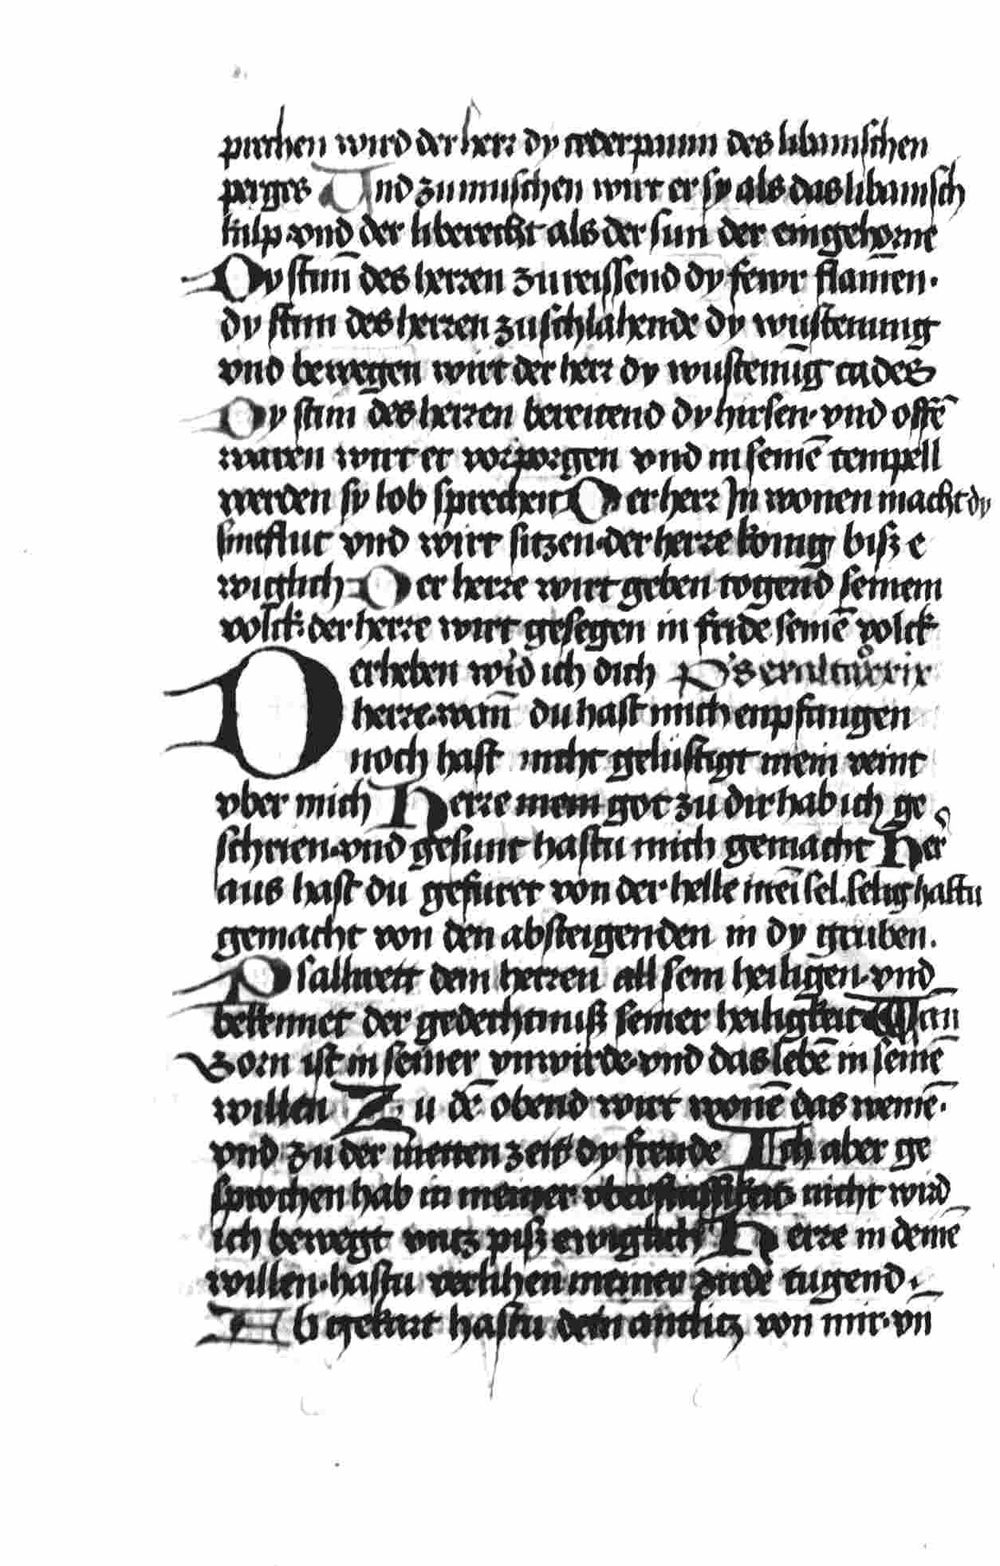 prechen wird der herr dy cederpaum des libanischen
perges Und zumuschen wirt er sy als das libanisch
kalp vnd der liberecht als der sun der eingehorne
Dy stim̄ des herren zureissend dy fewr flam̄en·
dy stim des herren zuschlahende dy wustenung
vnd bewegen wirt der herr dy wustenūg cades
Dy stim des herren bereitend dy hirsen· vnd offē
waren wirt er vorporgen vnd in seinē tempell
werden sy lob sprechen Der herr In wonen macht dy
sintflut vnd wirt sitzen· der herre konig bisz e
wiglich Der herre wirt geben togend seinem
volck· der herre wirt gesegen in fride seinē volck
D erheben wird ich dich
herre· wan̄ du hast mich enpfangen
noch hast nicht gelustigt mein veint
vber mich Herre mein got zu dir hab ich ge
schrien· vnd gesunt hastu mich gemacht Her
aus hast du gefuret von der helle mēi sel· selig hastu
gemacht von den absteigenden in dy gruben.
Psallirett dem herren all sein heiligen· vnd
bekennet der gedechtnuß seiner heiligkeit Wan
Zorn ist in seiner vnwirde· vnd das lebē in seinē
willen Zu dē obend wirt wonē das weinē·
vnd zu der metten zeit dy freude Ich aber ge
sprochen hab in meiner vberflussikeit nicht wird
ich bewegt vntz pisz ewiglich Herre in deinē
willen· hastu verlihen meiner zirde tugend·
Ab gekart hastu dein antlitz von mir· vn̄